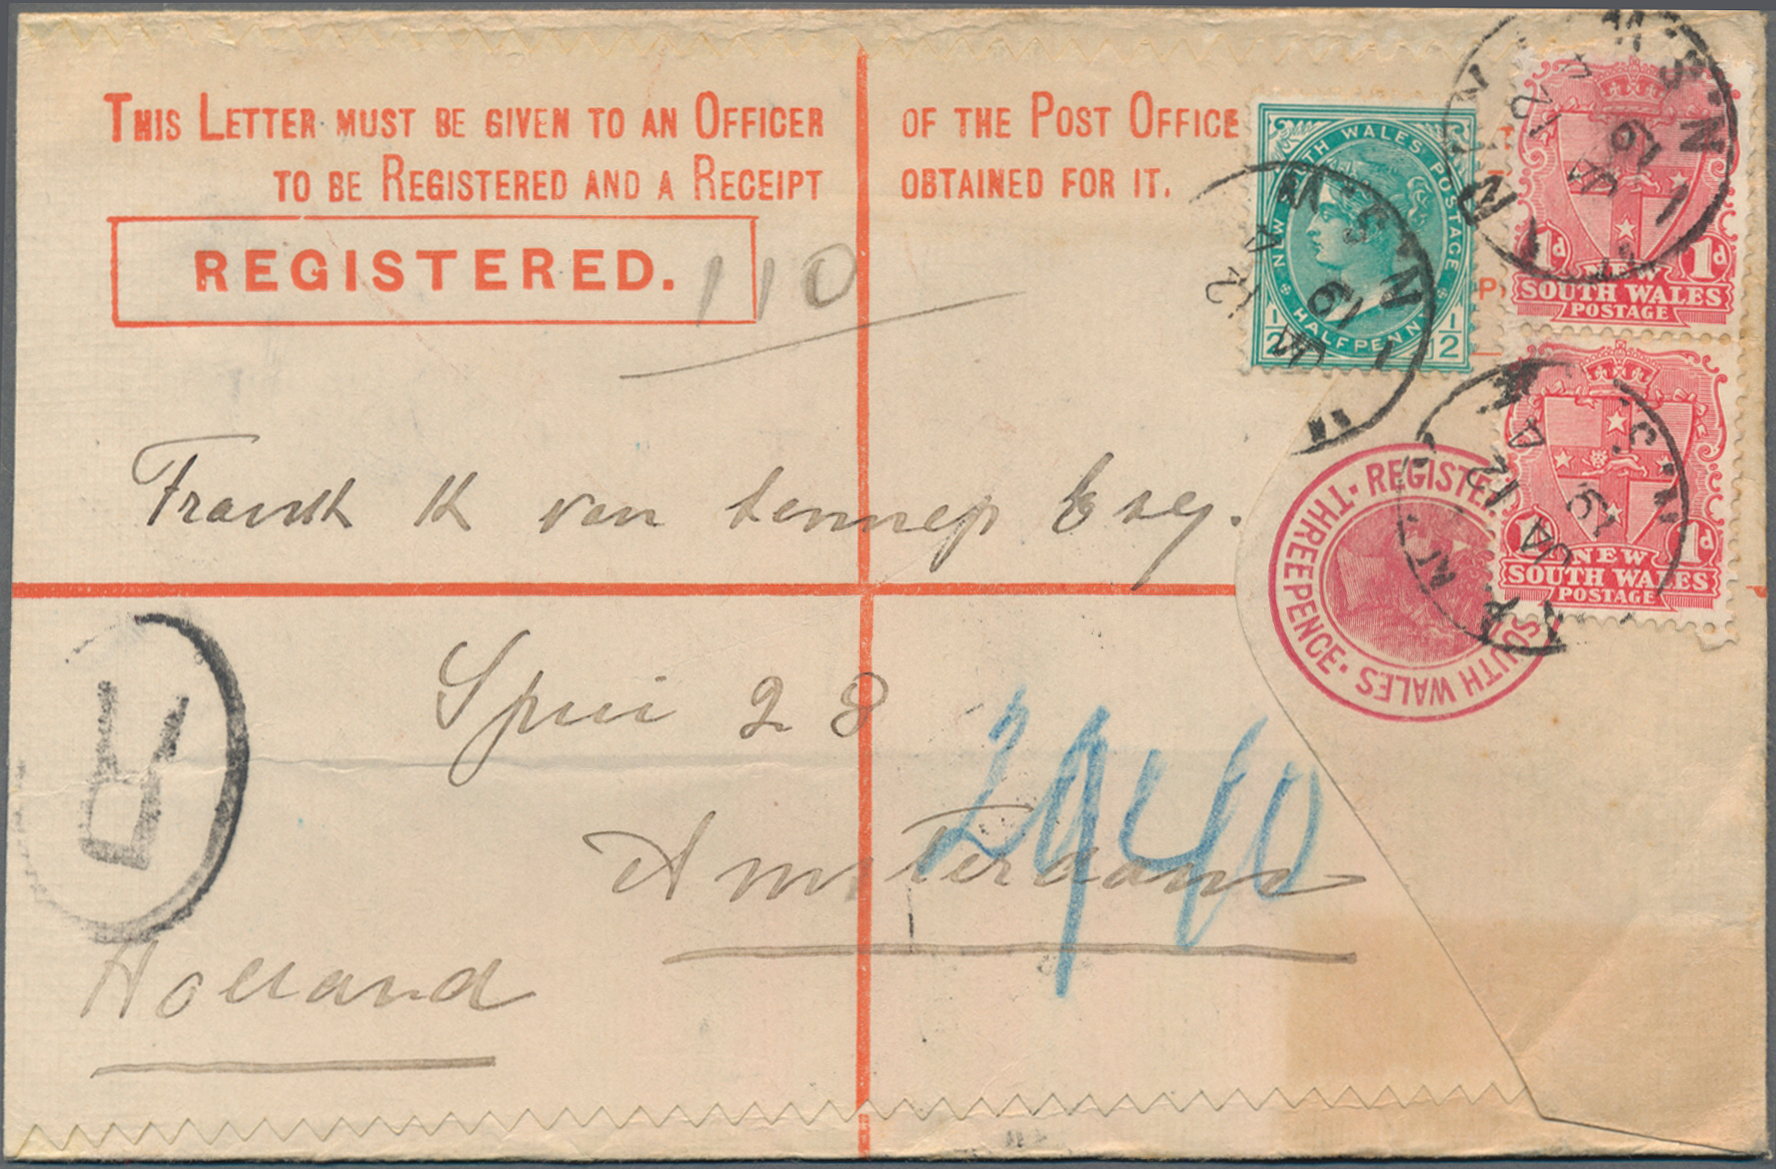 THIS LETTER MUST BE GIVEN TO AN OFFICER OF THE POST OFFICE
TO BE REGISTERED AND A RECEIPT OBTAINED FOR IT.
REGISTERED.
110
NEW SOUTH WALES POSTAGE
HALFPENNY
1/2 1/2
1d 1d
NEW
SOUTH WALES
POSTAGE
1d 1d
NEW
SOUTH WALES
POSTAGE
N.S.W
JA 19
N.S.W
JA 19
JA 19
Frank K van Lennep Esq.
THREEPENCE · REGISTE
SOUTH WALES ·
R
Spui 28
2940
Amsterdam
Holland